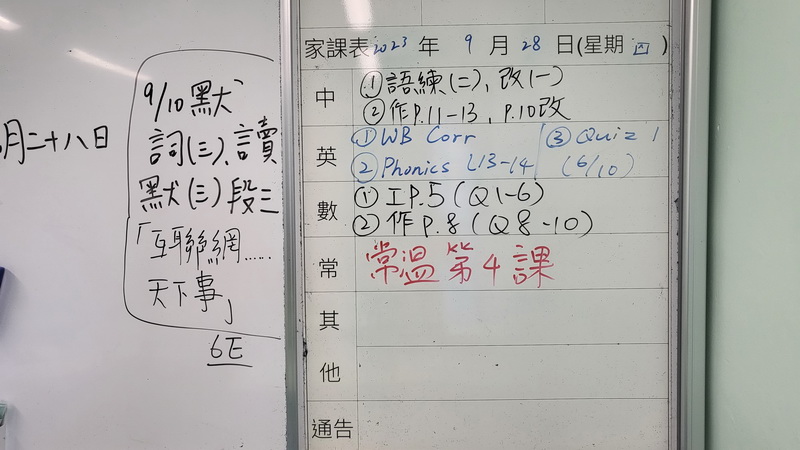 月二十八日
9/10默
詞(三)、讀
默(三)段三
「互聯網……
天下事」
6E
家課表2023年9月28日(星期四)
中
①語練(二)、改(一)
②作P.11-13, P.10改
英
①WB Corr
②Phonics L13-14
③Quiz 1
(6/10)
數
①工P.5(Q1-6)
②作P.8(Q8-10)
常
常溫第4課
其
他
通告